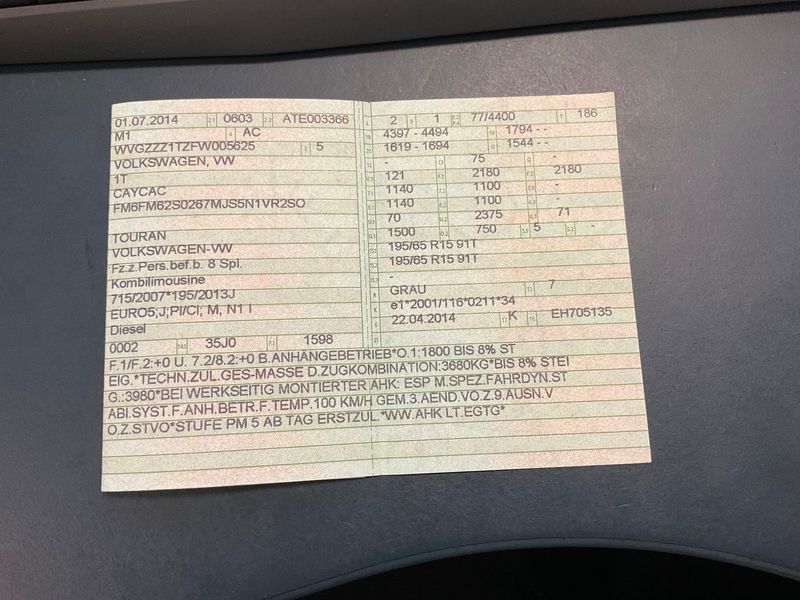 01.07.2014 0603 ATE003366
M1 AC
WVGZZZ1TZFW005625 5
VOLKSWAGEN, VW
1T
CAYCAC
FM6FM62S0267MJS5N1VR2SO
TOURAN
VOLKSWAGEN-VW
Fz.z.Pers.bef.b. 8 Spl.
Kombilimousine
715/2007*195/2013J
EURO5;J;PI/CI; M, N1 I
Diesel
0002 35J0 1598
2 1 77/4400 186
4397 - 4494 1794 - -
1619 - 1694 1544 - -
- 75 -
121 2180 2180
1140 1100 -
1140 1100 -
70 2375 71
1500 750 5 -
195/65 R15 91T
195/65 R15 91T
-
GRAU 7
e1*2001/116*0211*34
22.04.2014 K EH705135
F.1/F.2:+0 U. 7.2/8.2:+0 B.ANHÄNGEBETRIEB*O.1:1800 BIS 8% ST
EIG.*TECHN.ZUL.GES-MASSE D.ZUGKOMBINATION:3680KG*BIS 8% STEI
G.:3980*BEI WERKSEITIG MONTIERTER AHK: ESP M.SPEZ.FAHRDYN.ST
ABI.SYST.F.ANH.BETR.F.TEMP.100 KM/H GEM.3.AEND.VO.Z.9.AUSN.V
O.Z.STVO*STUFE PM 5 AB TAG ERSTZUL.*WW.AHK LT.EGTG*